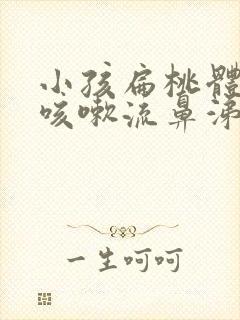 小孩扁桃體
咳嗽流鼻涕
一生呵呵